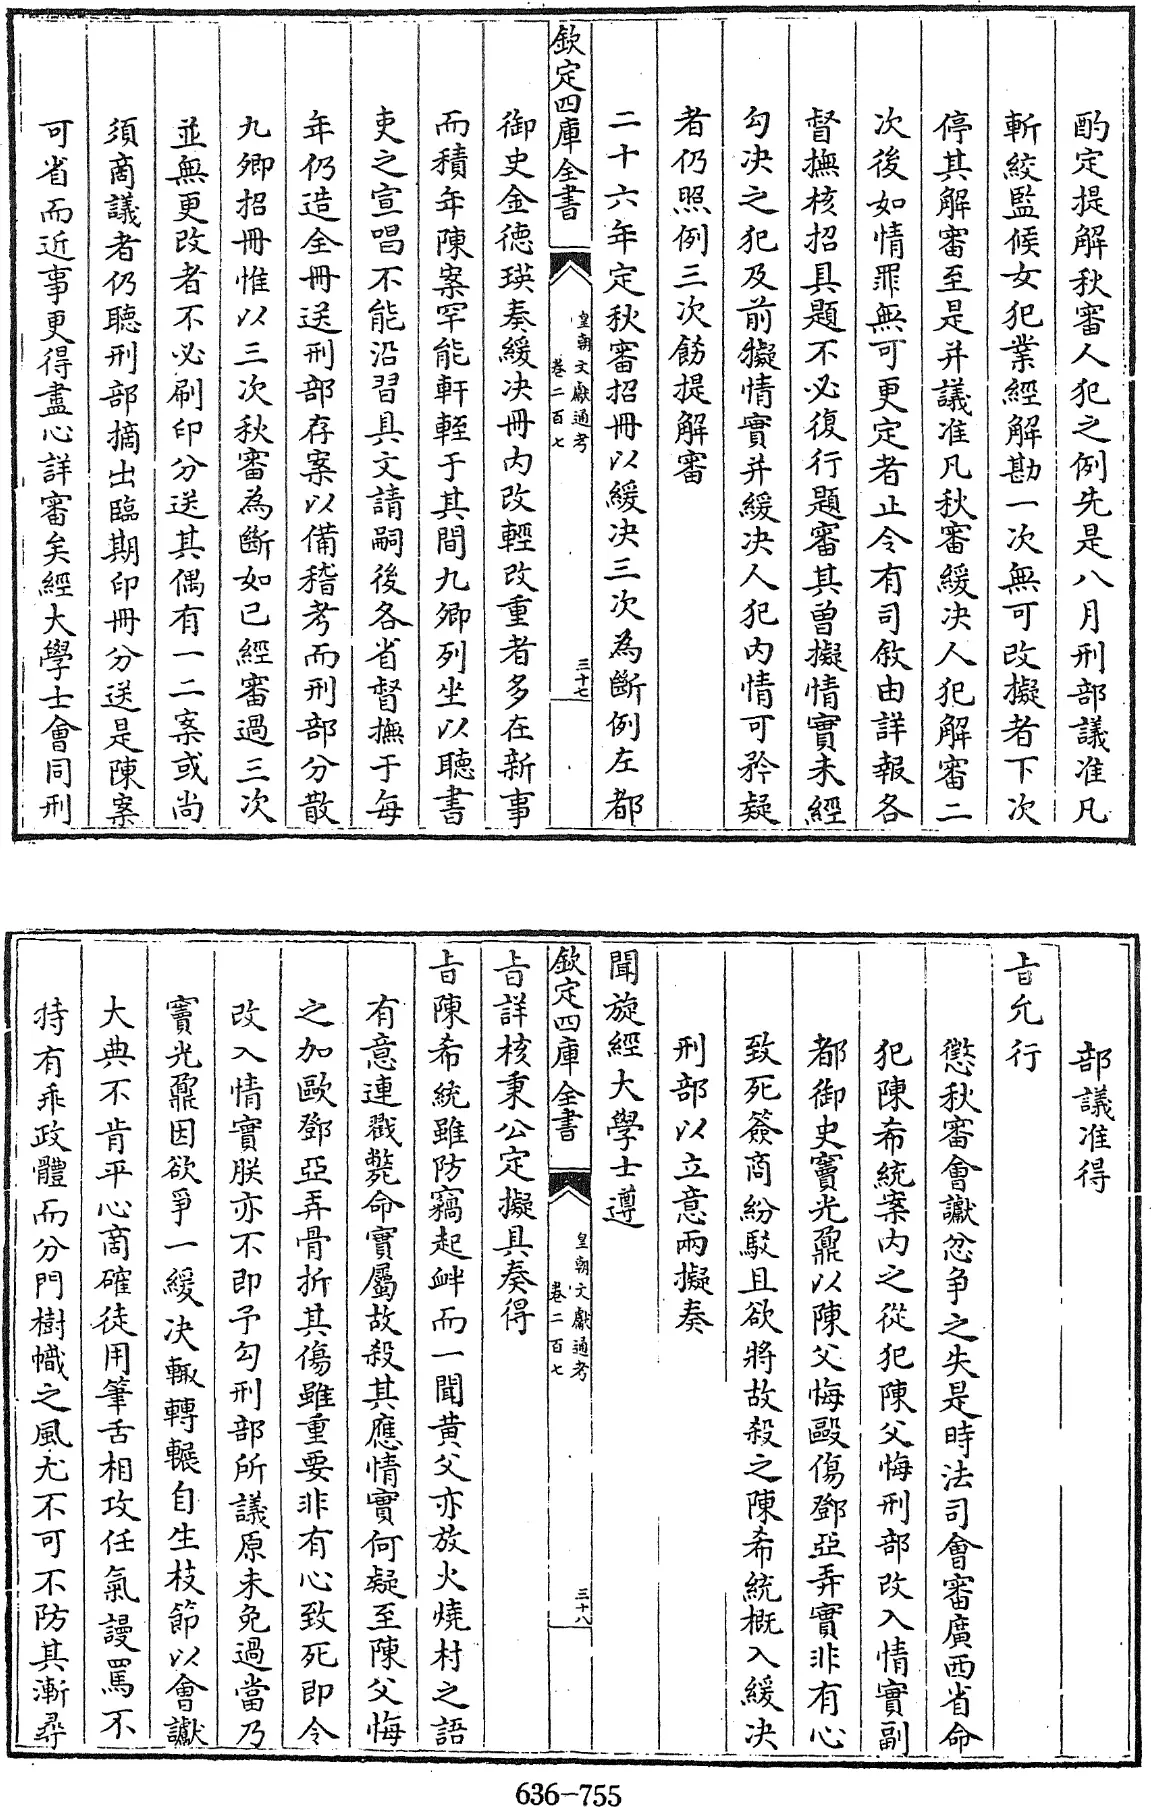 酌定提解秋審人犯之例先是八月刑部議准凡
斬絞監候女犯業經解勘一次無可改擬者下次
停其解審至是并議准凡秋審緩决人犯解審二
次後如情罪無可更定者止令有司敘由詳報各
督撫核招具題不必復行題審其曽擬情實未經
勾决之犯及前擬情實并緩决人犯内情可矜疑
者仍照例三次飭提解審
二十六年定秋審招冊以緩决三次為斷例左都
欽定四庫全書
皇朝文獻通考
卷二百七
三十七
御史金徳瑛奏緩决冊内改輕改重者多在新事
而積年陳案罕能軒輊于其間九卿列坐以聽書
吏之宣唱不能沿習具文請嗣後各省督撫于每
年仍造全冊送刑部存案以備稽考而刑部分散
九卿招冊惟以三次秋審為斷如已經審過三次
並無更改者不必刷印分送其偶有一二案或尚
須商議者仍聽刑部摘出臨期印冊分送是陳案
可省而近事更得盡心詳審矣經大學士會同刑
部議准得
㫖允行
懲秋審會讞忿争之失是時法司會審廣西省命
犯陳布統案内之從犯陳父悔刑部改入情實副
都御史竇光鼐以陳父悔毆傷鄧亞弄實非有心
致死簽商紛駁且欲將故殺之陳布統概入緩决
刑部以立意兩擬奏
聞旋經大學士遵
欽定四庫全書
皇朝文獻通考
卷二百七
三十八
㫖詳核秉公定擬具奏得
㫖陳布統雖防竊起衅而一聞黄父亦放火燒村之語
有意連戳斃命實屬故殺其應情實何疑至陳父悔
之加歐鄧亞弄骨折其傷雖重要非有心致死即令
改入情實朕亦不即予勾刑部所議原未免過當乃
竇光鼐因欲爭一緩决輙轉輾自生枝節以會讞
大典不肯平心商確徒用筆舌相攻任氣謾罵不
持有乖政體而分門樹幟之風尤不可不防其漸尋
636-755